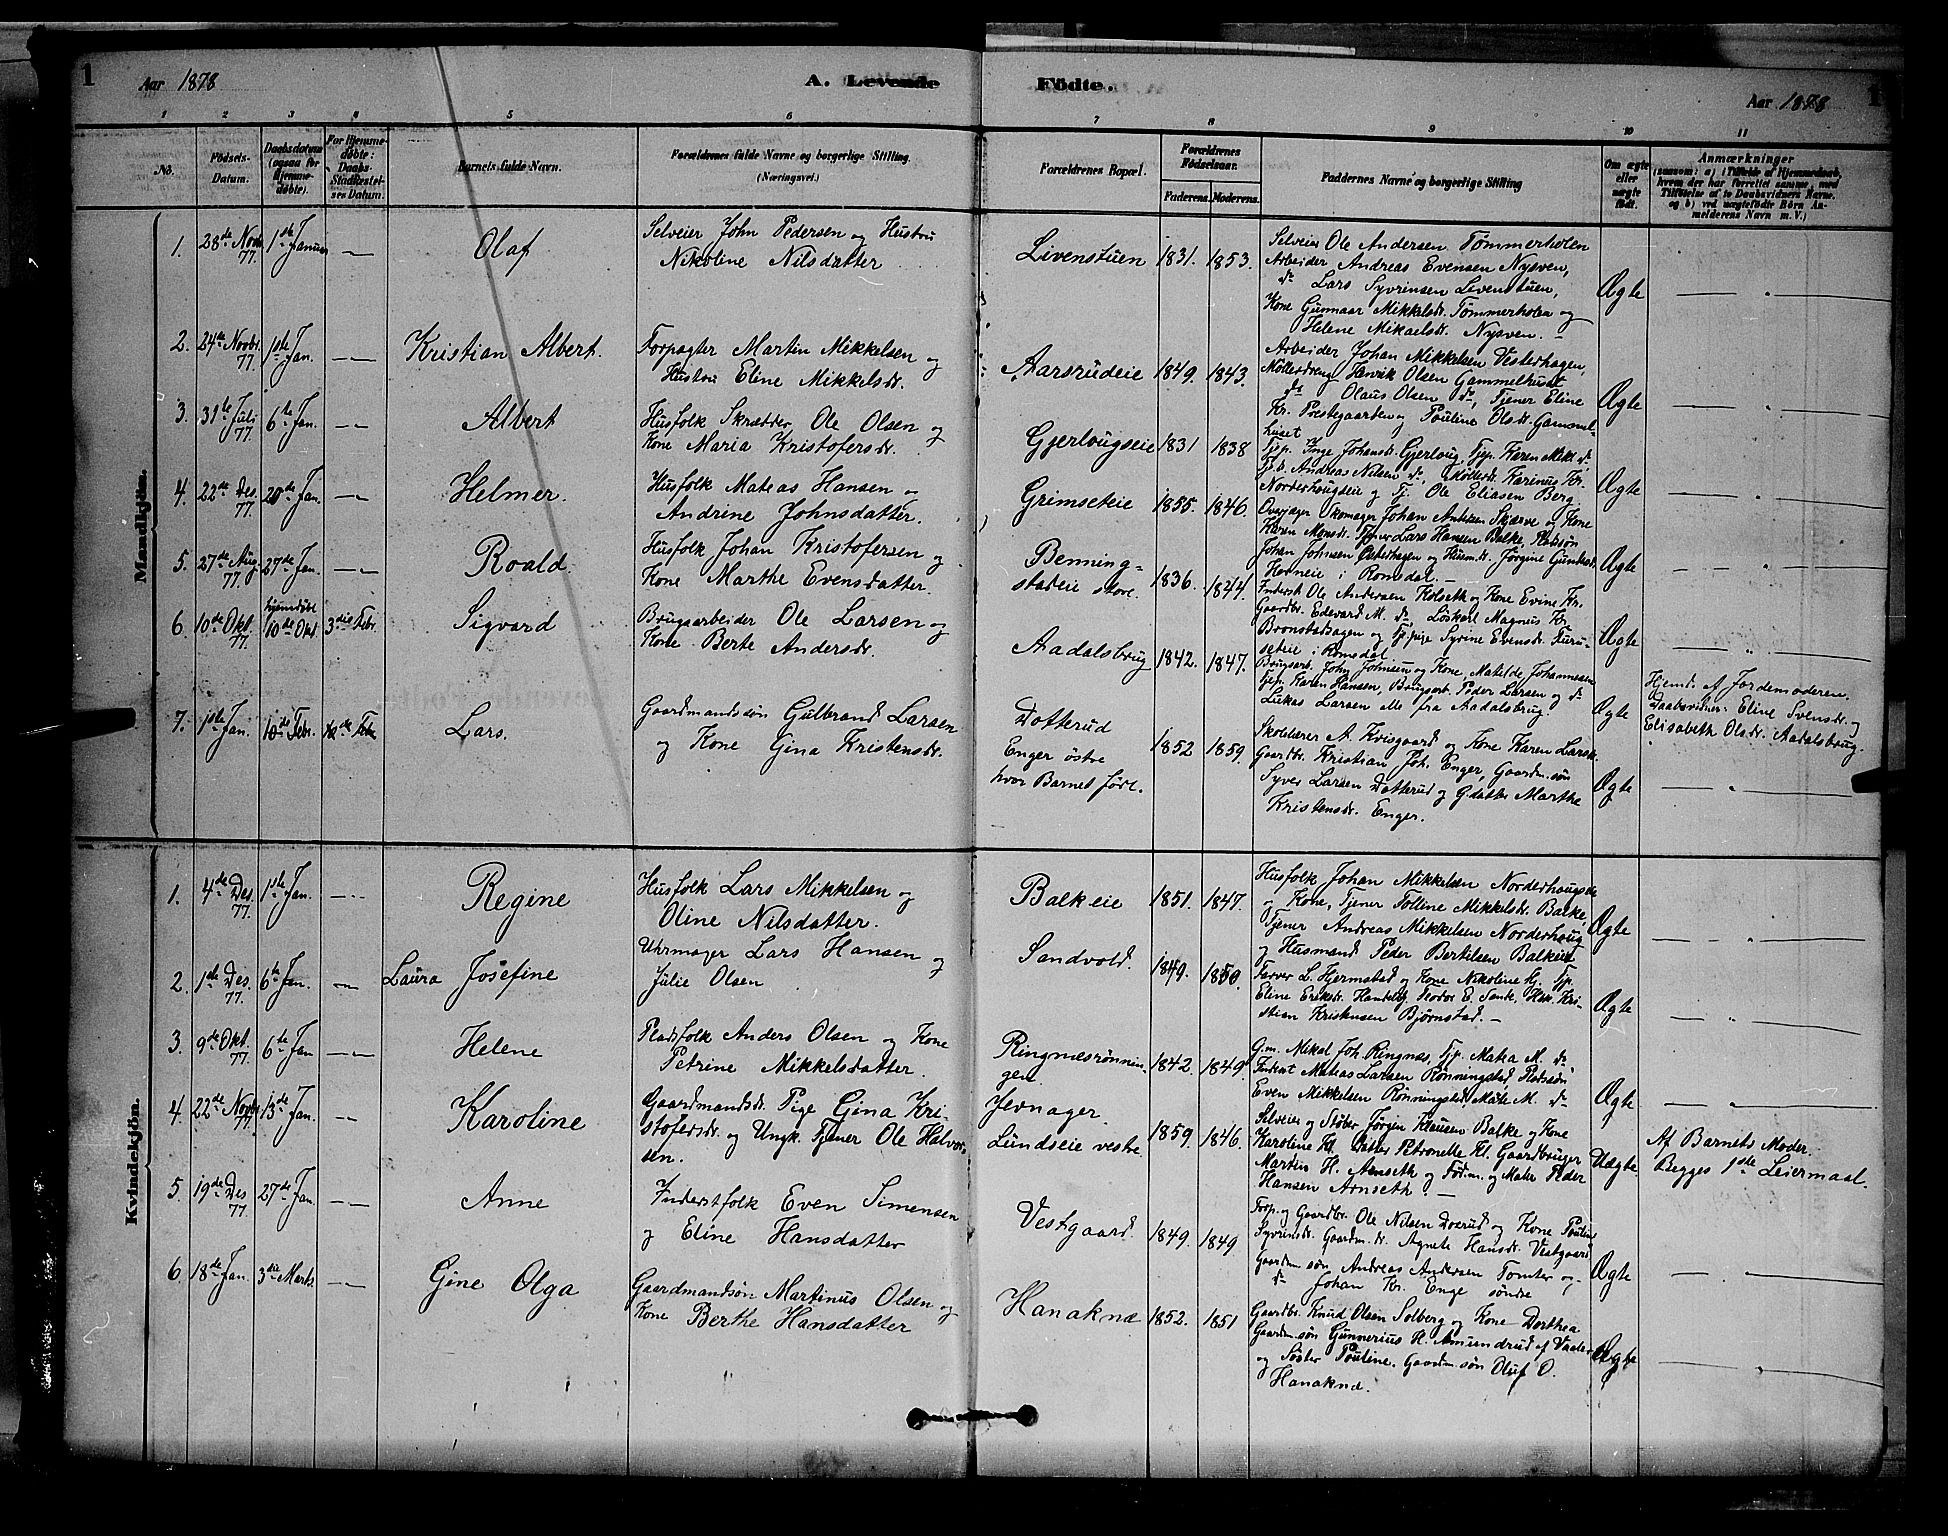 1
Aar 1878
A. Levende
Födte.
Aar 1878
1
1 2 3 4 5 6 7 8 9 10 11
No.
Födsels-
Datum.
Daabsdatum
(ogsaa for
Hjemme-
döbte).
For Hjemme-
døbte:
Daabs-
Stadfæstel-
ses Datum.
Barnets fulde Navn.
Forældrenes fulde Navne og borgerlige Stilling.
(Næringsvei.)
Forældrenes Bopæl.
Forældrenes
Födselsaar.
Faderens. Moderens.
Faddernes Navne og borgerlige Stilling
Om ægte
eller
uægte
født.
Anmærkninger
Mandkjön.
1. 28de Novbr 77. 1ste Januar — Olaf
Selveier John Pedersen og Hustru
Nikoline Nilsdatter
Livenstuen 1831. 1853.
Selveier Ole Andersen Tømmerholen
Arbeider Andreas Evensen Nysven,
do Lars Syvrinsen Livenstuen,
Kone Gunnaar Mikkelsdr. Tømmerholen og
Helene Mikaelsdr. Nysven. —
Ægte — " —
2. 24de Novbr. 77. 1ste Jan. — Kristian Albert.
Forpagter Martin Mikkelsen og
Hustru Eline Mikkelsdr.
Aarsrudeie 1849. 1843.
Arbeider Johan Mikkelsen Vesterhagen,
Møllerdreng Henrik Olsen Gammelhuset
do Olaus Olsen do, Tjener Eline
Kr. Prestegaarden og Pauline Olsdr. Gammel-
huset
Ægte — " —
3. 31te Juli 77. 6te Jan. — Albert
Husfolk Skrædder, Ole Olsen og
Kone Maria Kristofersdr.
Gjerlougseie 1831 1838
Tjp. Inge Johansdr. Gjerloug, Tjp. Karen Mikk. do
Andreas Nilsen do, Karinus Kr.
Norderhougseie og Tj. Ole Eliasen Berg
Ægte — " —
4. 22de Des. 77. 20de Jan. — Helmer.
Husfolk Mateas Hansen og
Andrine Johnsdatter.
Grimseteie 1855. 1846.
Skomager Johan Antksen Skjærve og Kone
Karen Monsdr. Tjener Lars Hansen Balke,
Johan Johnsen Østerhagen og Husm.dr. Jørgine Gundersd.
Horneie i Romsdal. —
Ægte — " —
5. 27de Aug. 77. 27de Jan. — Roald.
Husfolk Johan Kristofersen og
Kone Marthe Evensdatter.
Benning-
stadeie store. 1836. 1844.
Inderst Ole Andersen Kolseth og Kone Evine Kr.
Gaardbr. Edevard M. do, Løskarl Magnus Kr.
Bronstadsagen og Tj.pige Syrine Evensdr.
i Romsdal
Ægte — " —
6. 10de Okt. 77. hjemdøbt 10de Okt. 3die Febr. Sigvard
Brugsarbeider Ole Larsen og
Kone Berte Andersdr.
Aadalsbrug 1842. 1847.
Brugsarb. John Johnsen og Kone, Matilde Johannesen
Tjp. Karen Hansen, Brugsarb. Peder Larsen og do
Lukas Larsen alle fra Aadalsbrug.
Ægte
Hjemd. af Jordemoderen.
Daabsvidner: Eline Svensdr. og
Elisabeth Olsdr. Aadalsbrug.
7. 1ste Jan. 10de Febr. Lars.
Gaardmandssøn Gulbrand Larsen
og Kone Gina Kristensdr.
Dotterud
Enger østre
hvor Barnet født. 1852 1859.
Skolelærer A. Krisgaard og Kone Karen Larsdr.
Gaardbr. Kristian Joh. Enger, Gaardm.søn
Syver Larsen Dotterud og G.datter Marthe
Kristensdr. Enger.
Ægte — " —
Kvindekjön.
1. 4de Des. 77. 1ste Jan. — Regine
Husfolk Lars Mikkelsen og
Oline Nilsdatter.
Balkeie 1851. 1847.
Husfolk Johan Mikkelsen Norderhougseie
og Kone, Tjener Tolline Mikkelsdr. Balke,
Tjener Andreas Mikkelsen Norderhoug
og Husmand Peder Bertilsen Balkeeie
Ægte — " —
2. 1ste Des. 77. 6te Jan. — Laura Josefine
Uhrmager Lars Hansen og
Julie Olsen
Sandvold. 1849. 1850.
Farver L. Hjermstad og Kone Nikoline Hj. Tjp.
Eline Eriksdr. Handelsbj. Teodor E. Kri-
stian Kristensen Bjørnstad. —
Ægte — " —
3. 9de Okt. 77. 6te Jan — Helene
Pladsfolk Anders Olsen og Kone
Petrine Mikkelsdatter.
Ringnæsrønnin-
gen. 1842. 1849.
G.m. Mikal Joh. Ringnæs, Tjp. Matea M. do
Inderst Mateas Larsen Rønningstad, Pladssøn
Even Mikkelsen Rønningstad, Mate M. do
Ægte — " —
4. 22de Novbr 77. 13de Jan. — Karoline
Gaardmandsdr. Pige Gina Kri-
stofersdr. og Ungk. Tjener Ole Halvor-
sen.
Jevnager
Lundseie vestre 1859. 1846.
Selveier og Støber Jørgen Klausen Balke og Kone
Karoline Kl. Datter Petronelle Kl. Gaardbruger
Martin H. Arnseth og Maler Peder
Hansen Arnseth. —
Uægte
Af Barnets Moder.
Begges 1ste Leiermaal.
5. 19de Des 77. 27de Jan. — Anne
Inderstfolk Even Simensen
og Eline Hansdatter
Vestgaard. 1849. 1849
Forp. og Gaardbr. Ole Nilsen og Kone Pauline
Syvrinsdr. Gaardm.dr. Agnete Hansdr. Vestgaard
Gaardm.søn Andreas Andersen Tomter og
do Johan Kr. Enge søndre
Ægte — " —
6. 18de Jan. 3die Marts. — Gine Olga
Gaardmandssøn Martinus Olsen og
Kone Berthe Hansdatter
Hanaknæ 1852. 1851
Gaardbr. Knud Olsen Solberg og Kone Dorthea
Gaardm.søn Gunnerius H. Amundrud af Vaaler
og Søster Pauline. Gaardm.søn Oluf O.
Hanaknæ.
Ægte — " —